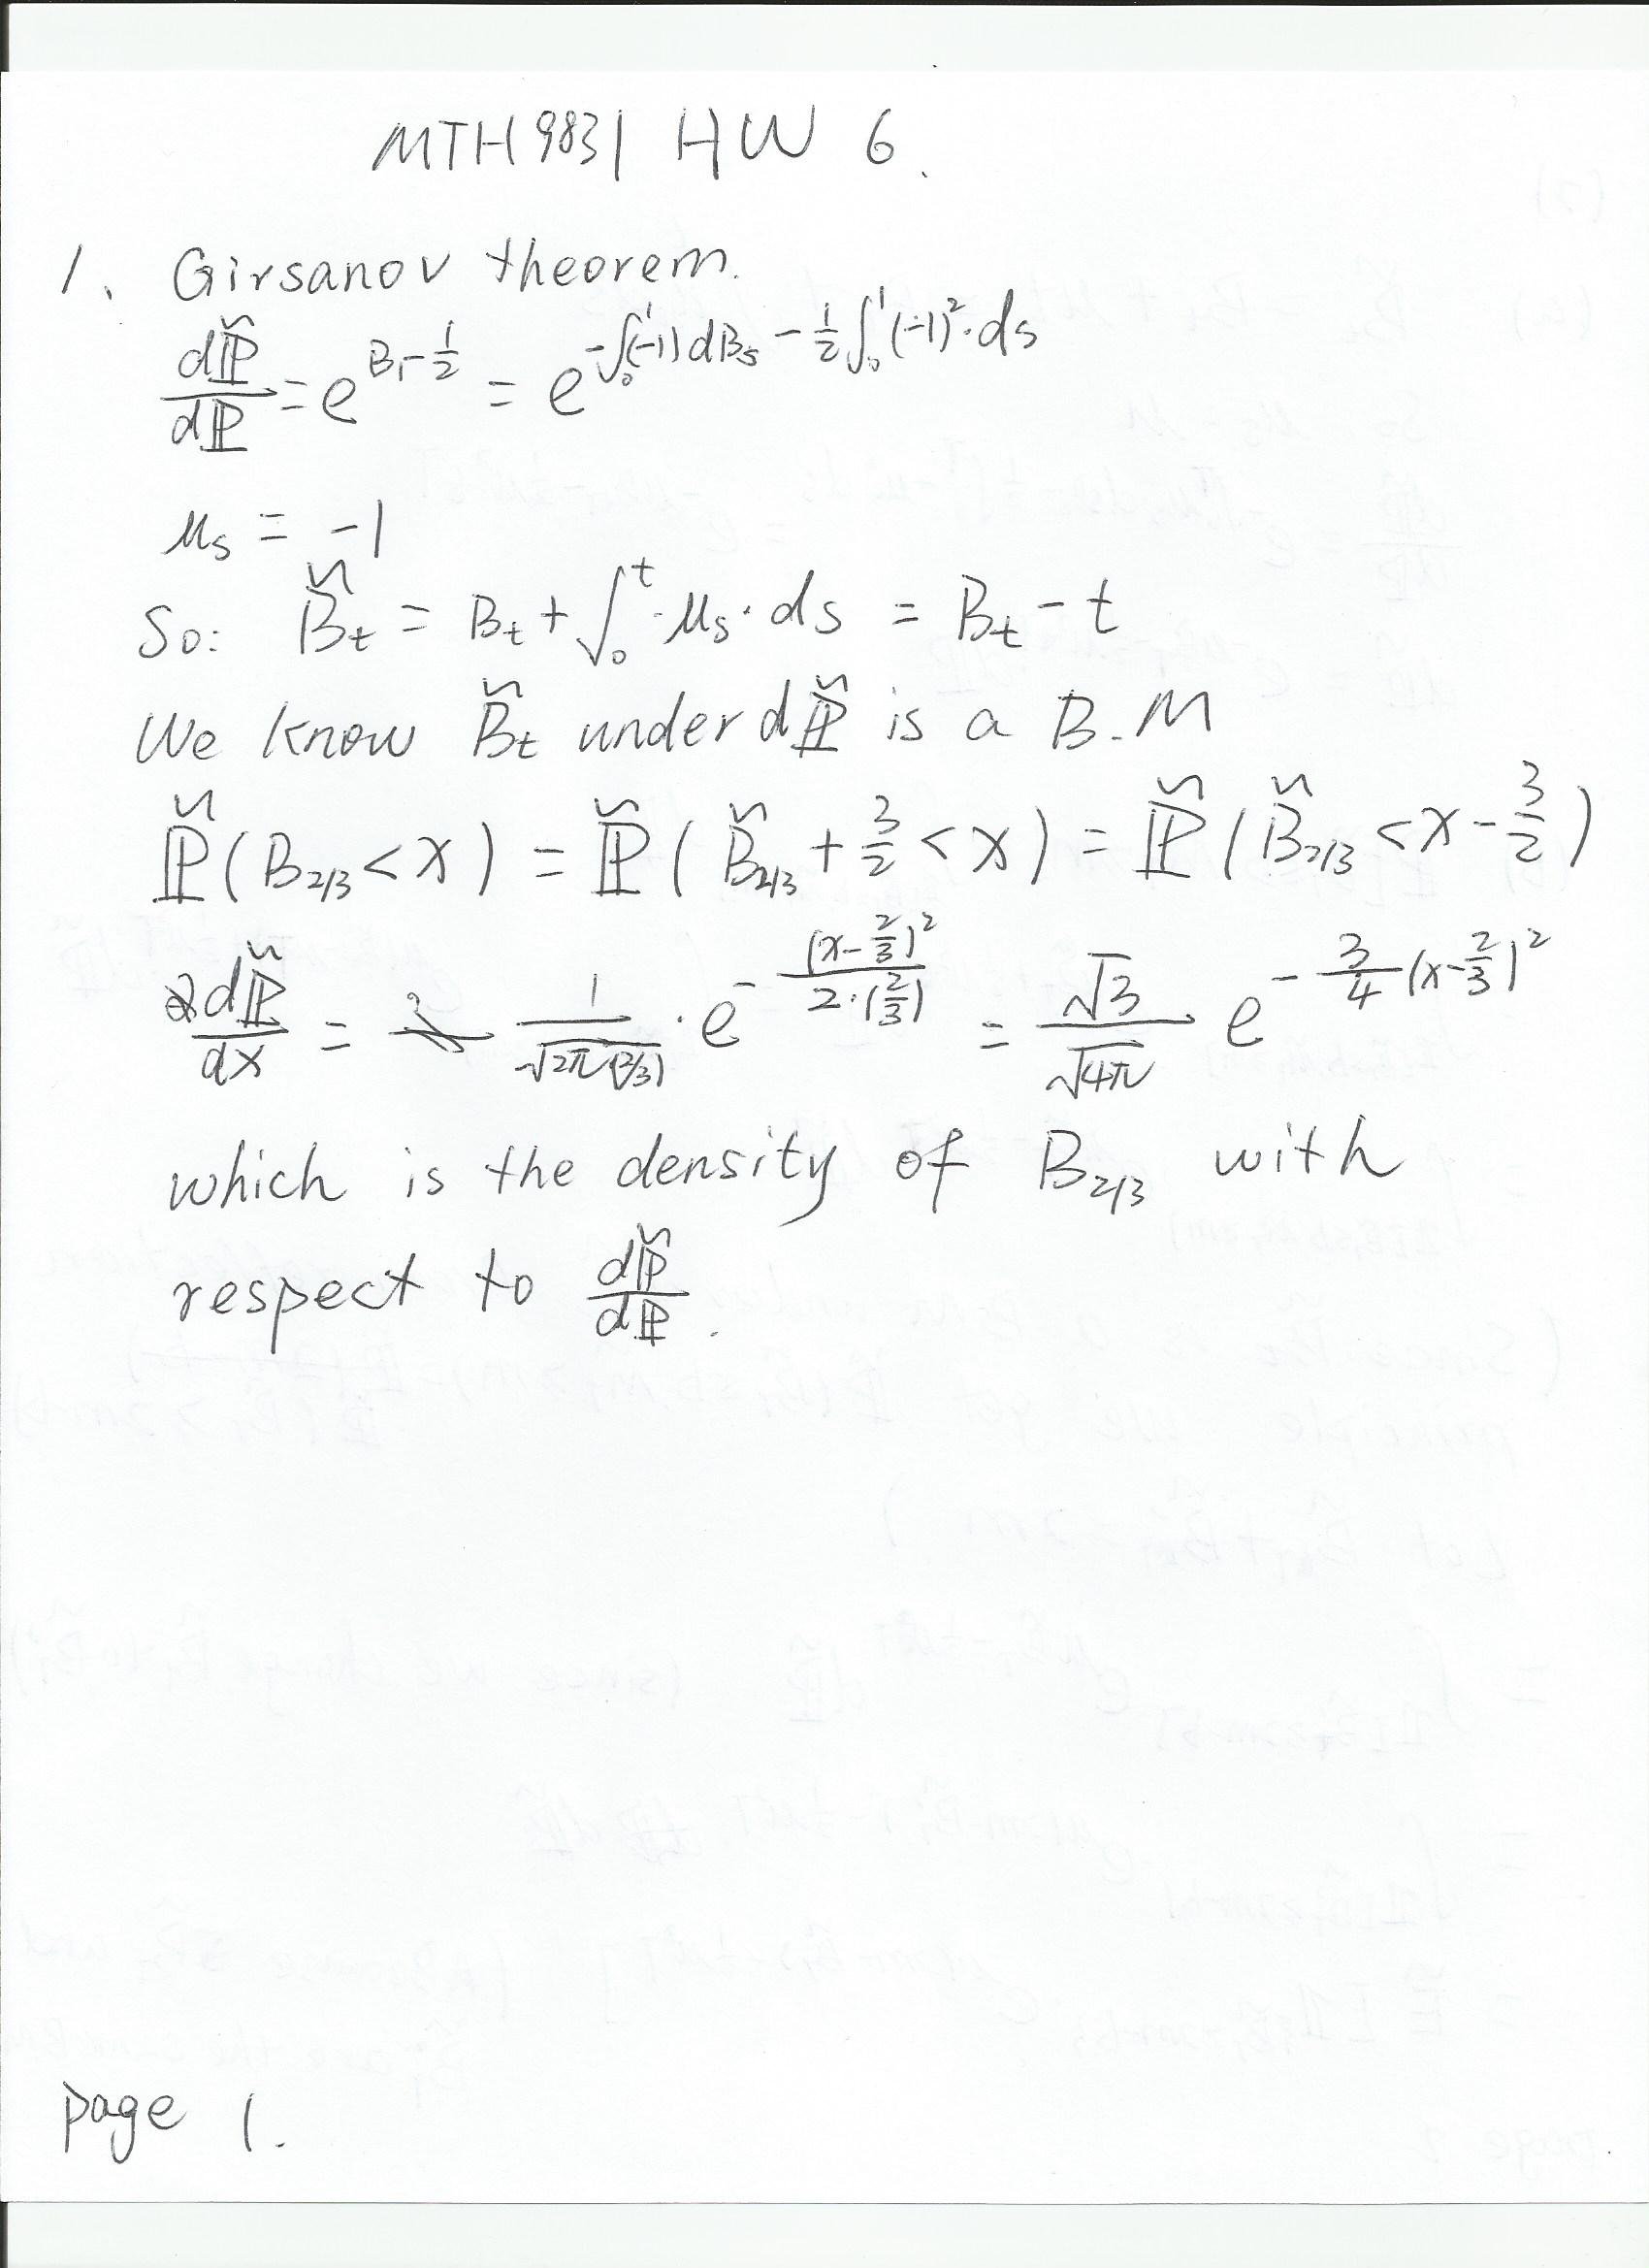 MTH9831 HW 6.
1. Girsanov theorem.
dP̃/dP = e^{B₁ - 1/2} = e^{-∫₀¹(-1)dBₛ - 1/2∫₀¹(-1)²·ds}
μₛ = -1
So: B̃ₜ = Bₜ + ∫₀ᵗ μₛ·ds = Bₜ - t
We know B̃ₜ under dP̃ is a B.M
P̃(B_{2/3} < x) = P̃(B̃_{2/3} + 3/2 < x) = P̃(B̃_{2/3} < x - 3/2)
dP̃/dx = 1/√(2π(2/3)) · e^{-(x-2/3)²/(2·(2/3))} = √3/√(4π) e^{-3/4(x-2/3)²}
which is the density of B_{2/3} with
respect to dP̃/dP.
page 1.